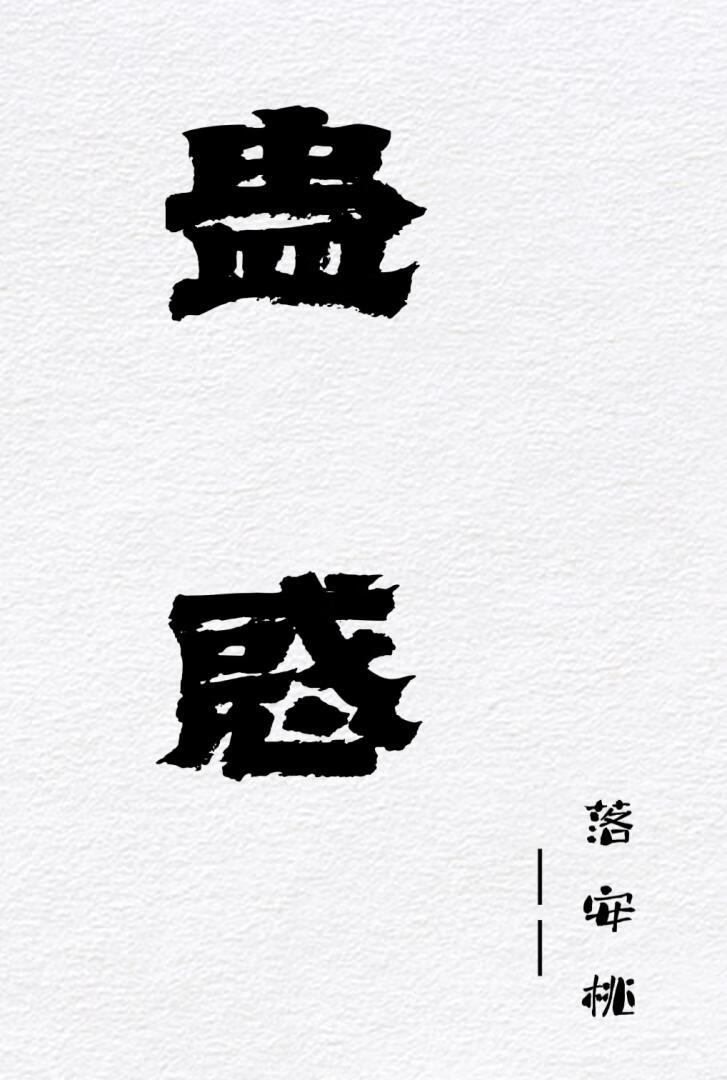 蛊惑
——
落安桃